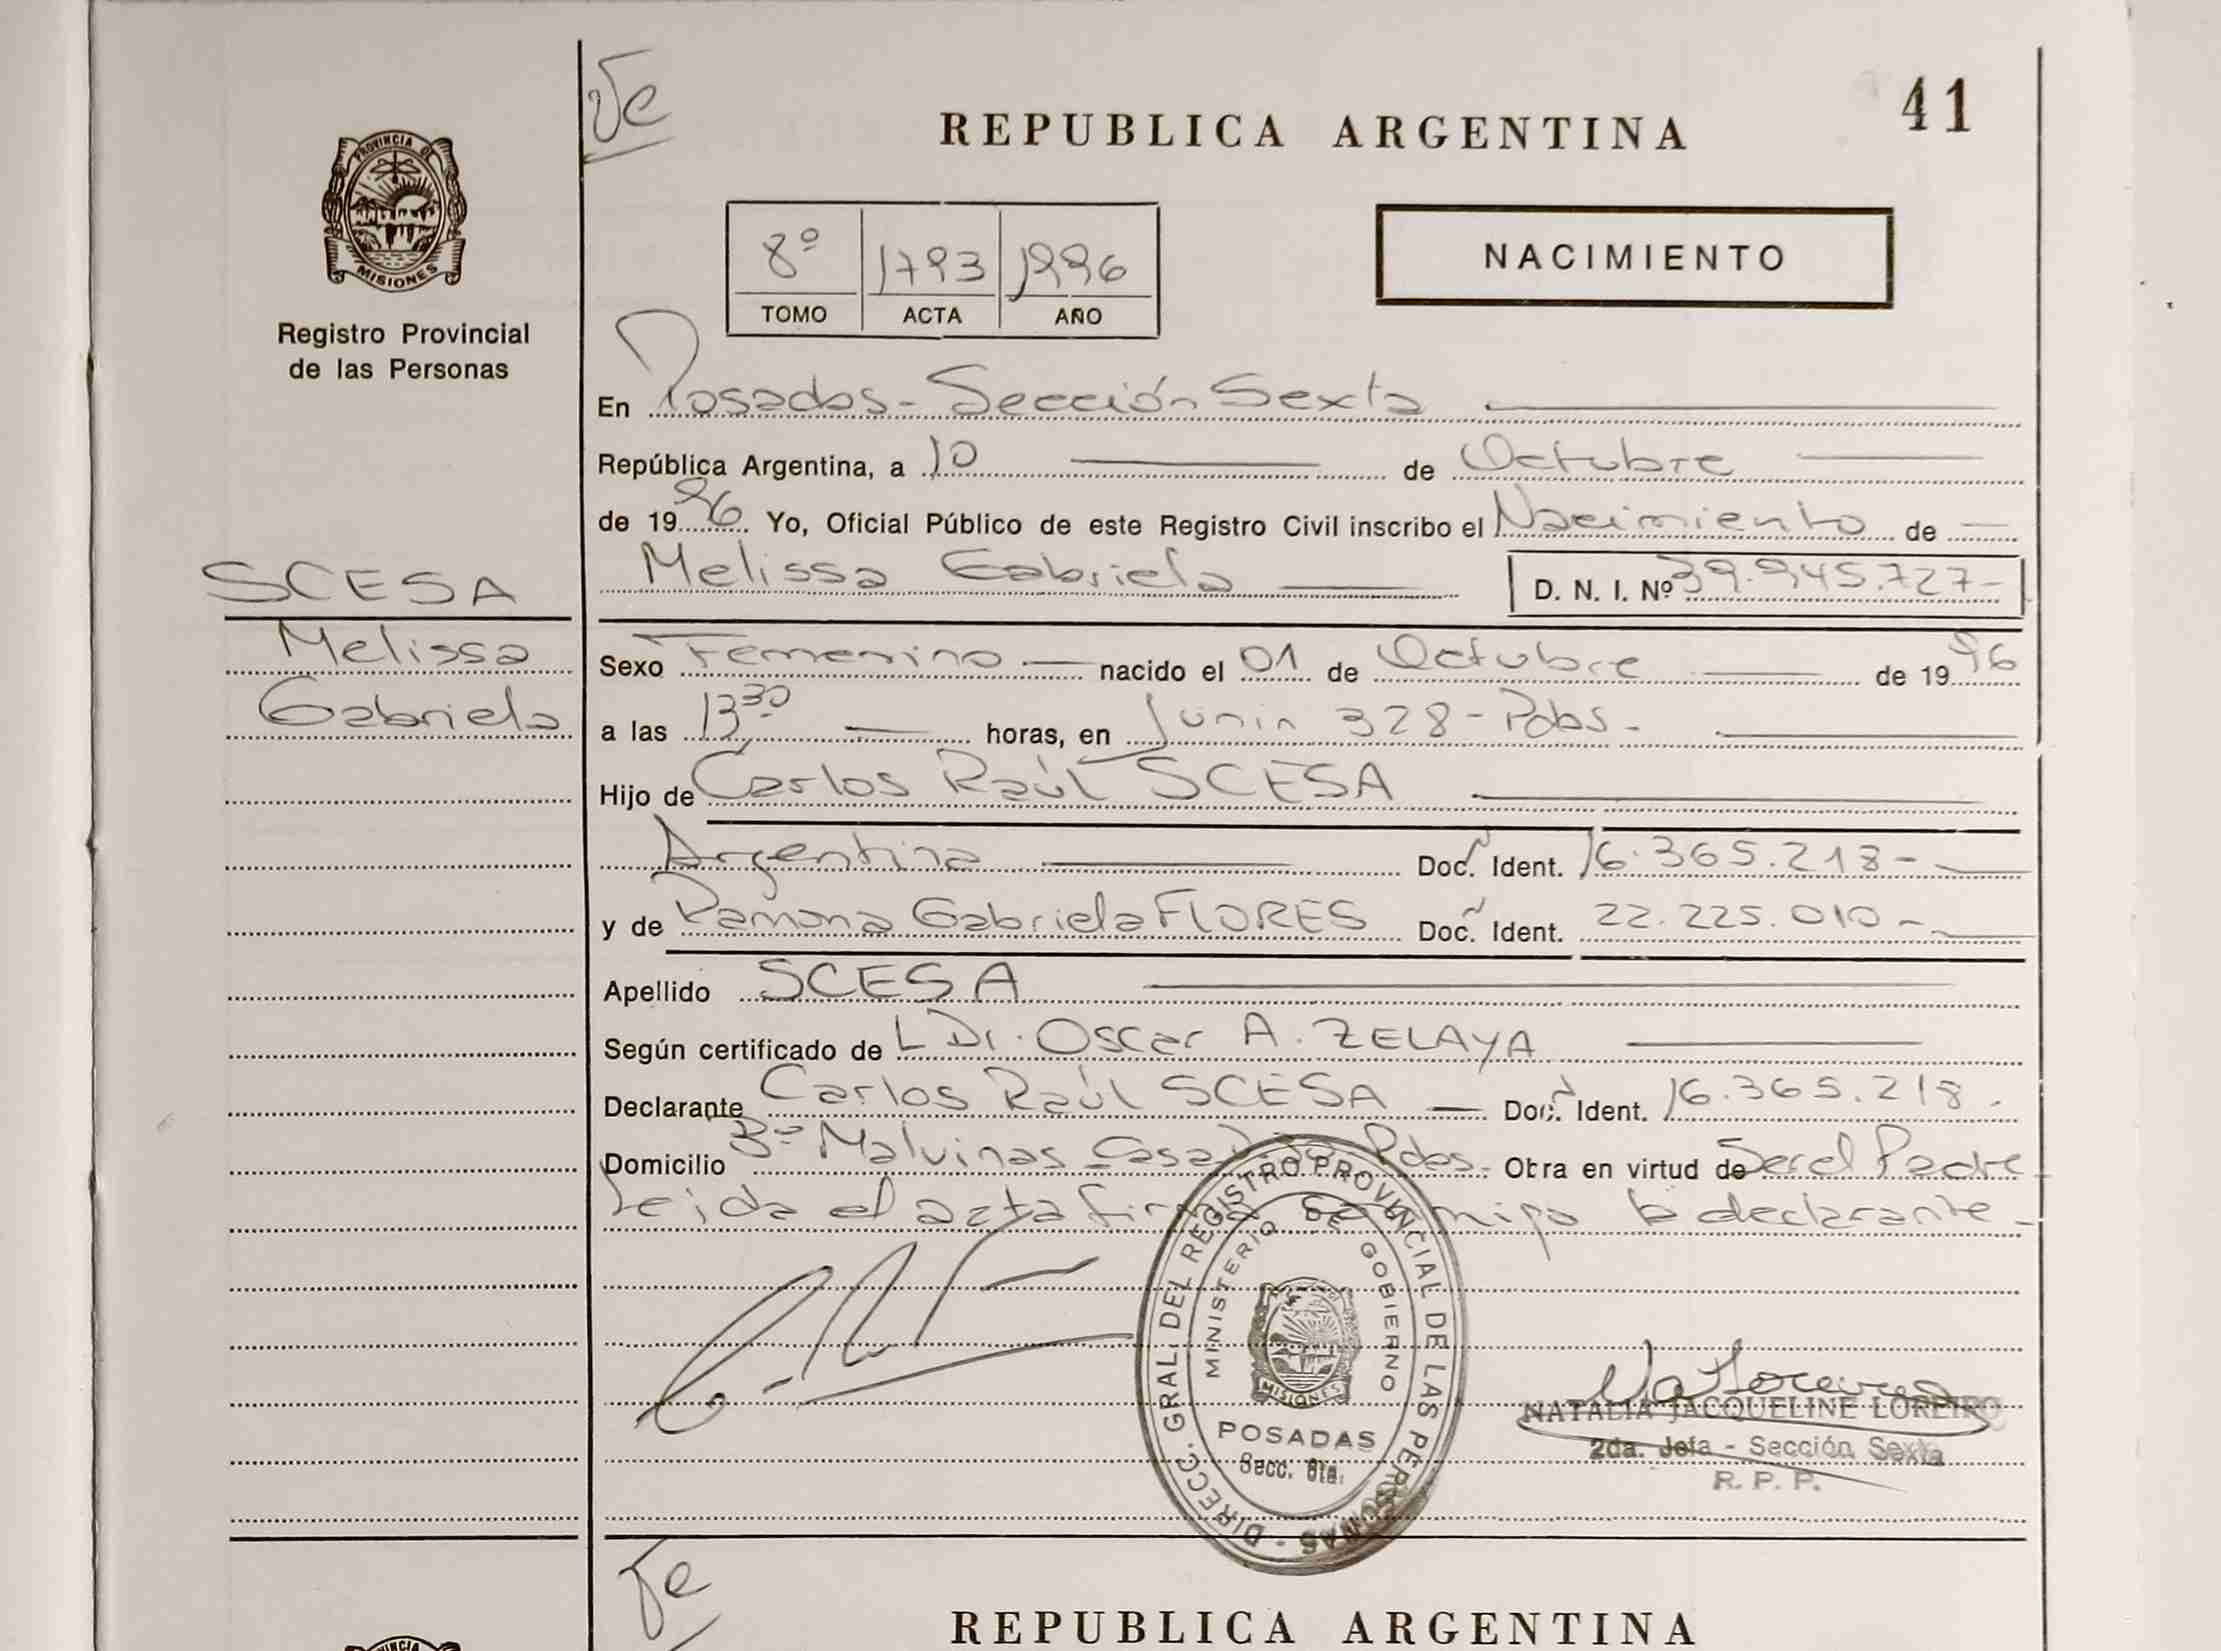 41
REPUBLICA ARGENTINA
PROVINCIA DE
MISIONES
Registro Provincial
de las Personas
8º 1793 1996
TOMO ACTA AÑO
NACIMIENTO
En Posadas - Sección Sexta
República Argentina, a 10 de Octubre
de 1996 Yo, Oficial Público de este Registro Civil inscribo el Nacimiento de
Melissa Gabriela D. N. I. Nº 39.945.727-
SCESA
Melissa
Gabriela
Sexo Femenino nacido el 01 de Octubre de 1996
a las 13 30 horas, en Junin 328 - Pdas.
Hijo de Carlos Raúl SCESA
Argentina Doc. Ident. 16.365.218-
y de Ramona Gabriela FLORES Doc. Ident. 22.225.010-
Apellido SCESA
Según certificado de L Dr. Oscar A. ZELAYA
Declarante Carlos Raúl SCESA Doc. Ident. 16.365.218.
Domicilio Bº Malvinas Casa Pdas. Obra en virtud de Ser el Padre
Leida el acta firma conmigo el declarante
DIRECC. GRAL. DEL REGISTRO PROVINCIAL DE LAS PERSONAS
MINISTERIO DE GOBIERNO
MISIONES
POSADAS
Secc. 6ta.
NATALIA JACQUELINE LOREIRO
2da. Jefa - Sección Sexta
R. P. P.
REPUBLICA ARGENTINA